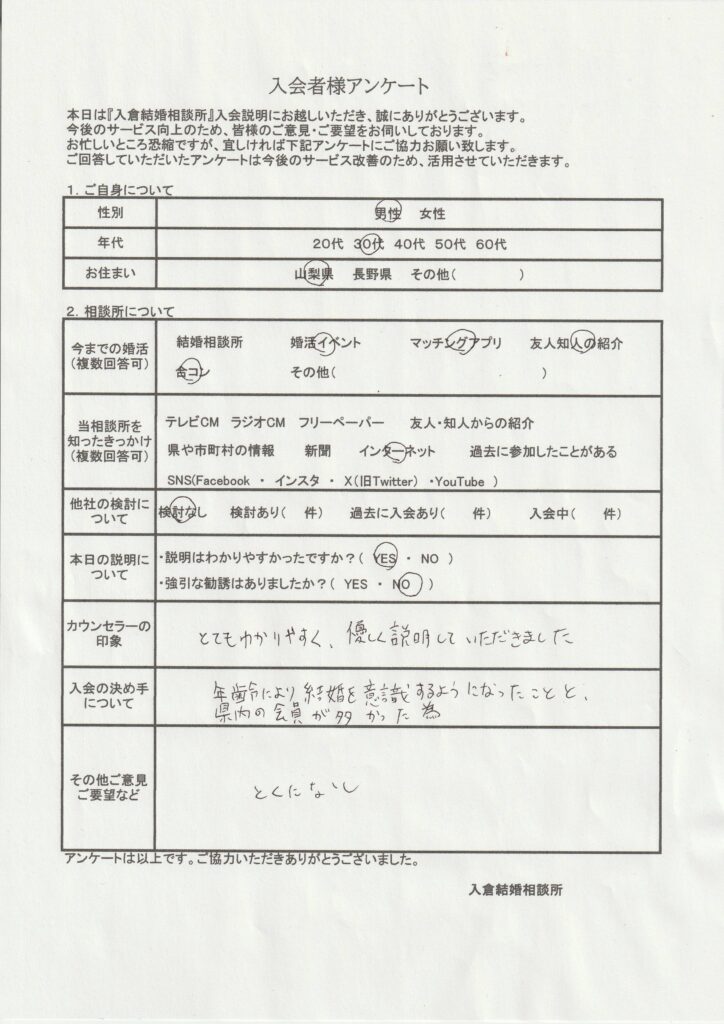 入会者様アンケート
本日は『入倉結婚相談所』入会説明にお越しいただき、誠にありがとうございます。
今後のサービス向上のため、皆様のご意見・ご要望をお伺いしております。
お忙しいところ恐縮ですが、宜しければ下記アンケートにご協力お願い致します。
ご回答していただいたアンケートは今後のサービス改善のため、活用させていただきます。
1. ご自身について
性別 男性 女性
年代 20代 30代 40代 50代 60代
お住まい 山梨県 長野県 その他( )
2. 相談所について
今までの婚活
(複数回答可)
結婚相談所 婚活イベント マッチングアプリ 友人知人の紹介
合コン その他( )
当相談所を
知ったきっかけ
(複数回答可)
テレビCM ラジオCM フリーペーパー 友人・知人からの紹介
県や市町村の情報 新聞 インターネット 過去に参加したことがある
SNS(Facebook ・ インスタ ・ X(旧Twitter) ・YouTube )
他社の検討に
ついて
検討なし 検討あり( 件) 過去に入会あり( 件) 入会中( 件)
本日の説明に
ついて
・説明はわかりやすかったですか?( YES ・ NO )
・強引な勧誘はありましたか?( YES ・ NO )
カウンセラーの
印象
とてもわかりやすく、優しく説明していただきました
入会の決め手
について
年齢により結婚を意識するようになったことと、
県内の会員が多かった為
その他ご意見
ご要望など
とくになし
アンケートは以上です。ご協力いただきありがとうございました。
入倉結婚相談所